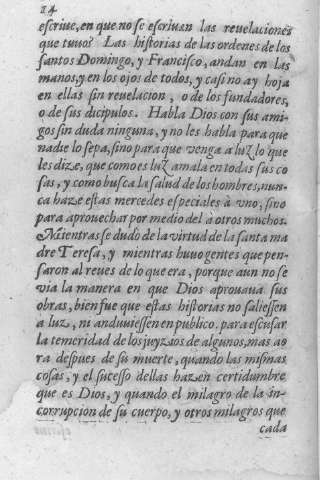 14
escriue, en que no se escriuan las reuelaciones
que tuuo? Las historias de las ordenes de los
santos Domingo, y Francisco, andan en las
manos, y en los ojos de todos, y casi no ay hoja
en ellas sin reuelacion, o de los fundadores,
o de sus dicipulos. Habla Dios con sus ami-
gos sin duda ninguna, y no les habla para que
nadie lo sepa, sino para que venga a luz lo que
les dize, que como es luz amala en todas sus co
sas, y como busca la salud de los hombres, nun-
ca haze estas mercedes especiales à vno, sino
para aprouechar por medio del à otros muchos.
Mientras se dudo de la virtud de la santa ma
dre Teresa, y mientras huuo gentes que pen-
saron al reues de lo que era, porque aun no se
via la manera en que Dios aprouaua sus
obras, bien fue que estas historias no saliessen
a luz, ni anduuiessen en publico. para escusar
la temeridad de los juyzios de algunos, mas ao
ra despues de su muerte, quando las mismas
cosas, y el sucesso dellas hazen certidumbre
que es Dios, y quando el milagro de la in-
corrupcion de su cuerpo, y otros milagros que
cada